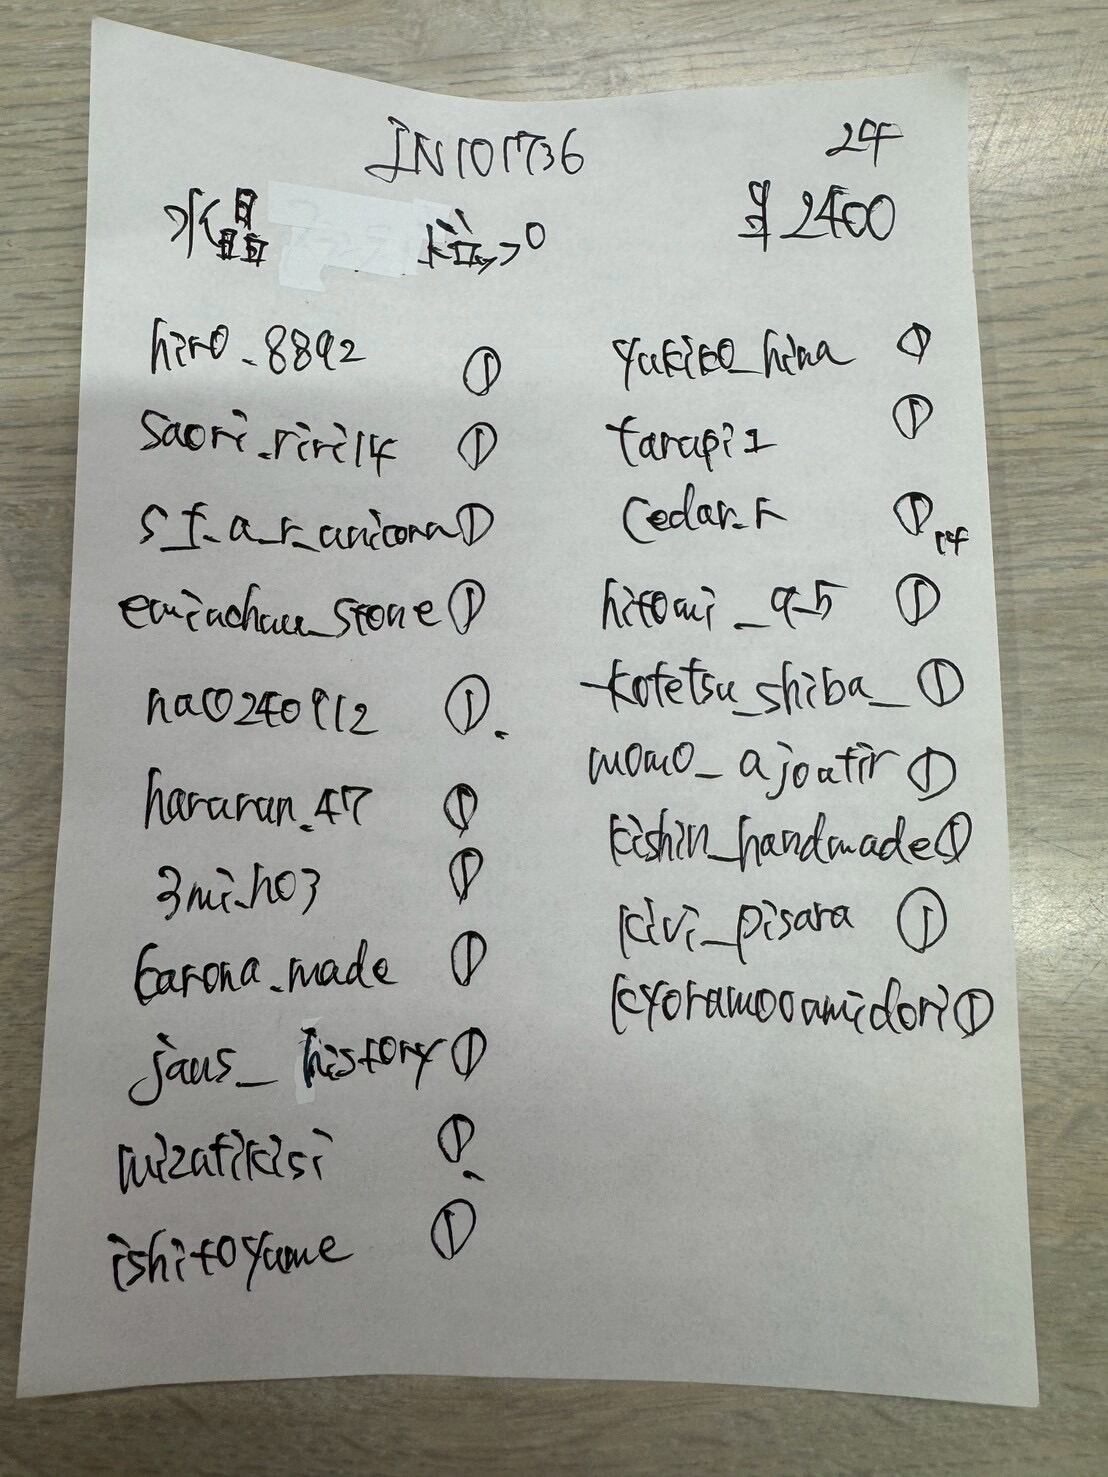 IN101736
24
水晶
$2400
hiro_8892 ①
saori_riri14 ①
s_f_a_r_unicorn ①
eminchau_stone ①
nao240912 ①
hararan_47 ①
3mi_ho3 ①
barona_made ①
jaus_history ①
mizatikisi ①
ishitoyume ①
yukiko_hina ①
tarapi1 ①
cedar_r ① 14
hitomi_9_5 ①
kotetsu_shiba_ ①
momo_ajoutir ①
kishin_handmade ①
kivi_pisara ①
kyoramooamidori ①